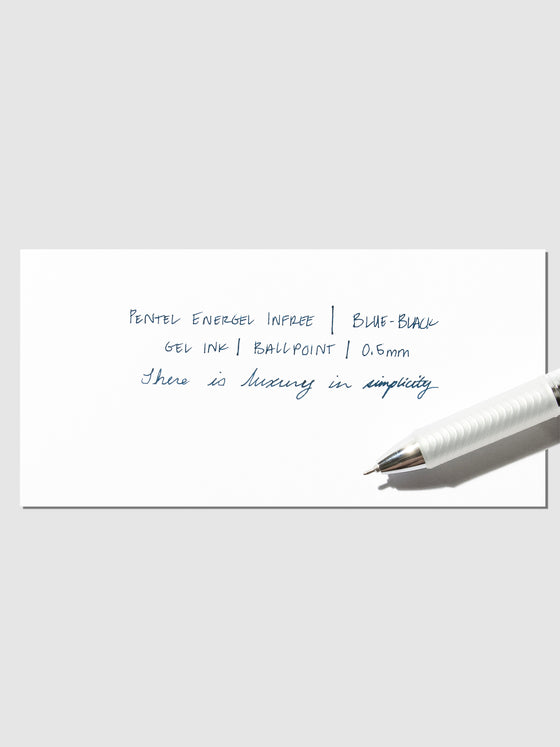 PENTEL ENERGEL INFREE | BLUE-BLACK
GEL INK | BALLPOINT | 0.5mm
There is luxury in simplicity